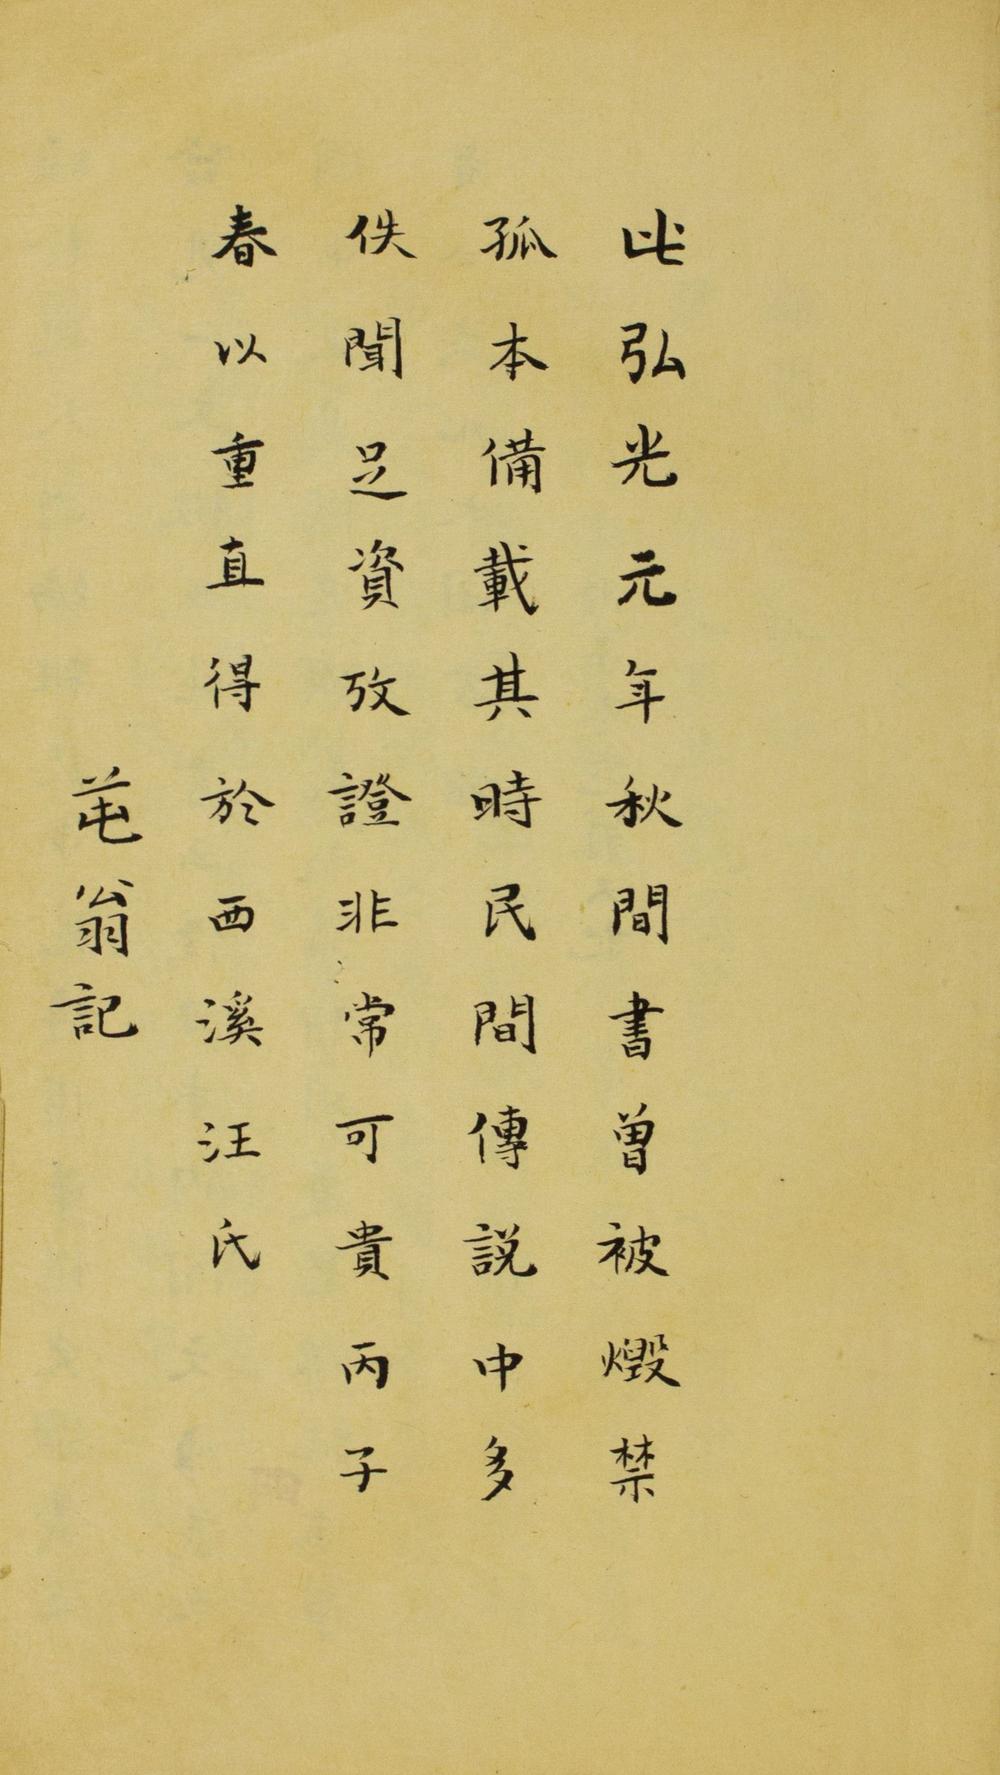 此弘光元年秋間書曾被燬禁
孤本備載其時民間傳説中多
佚聞足資攷證非常可貴丙子
春以重直得於西溪汪氏
芚翁記